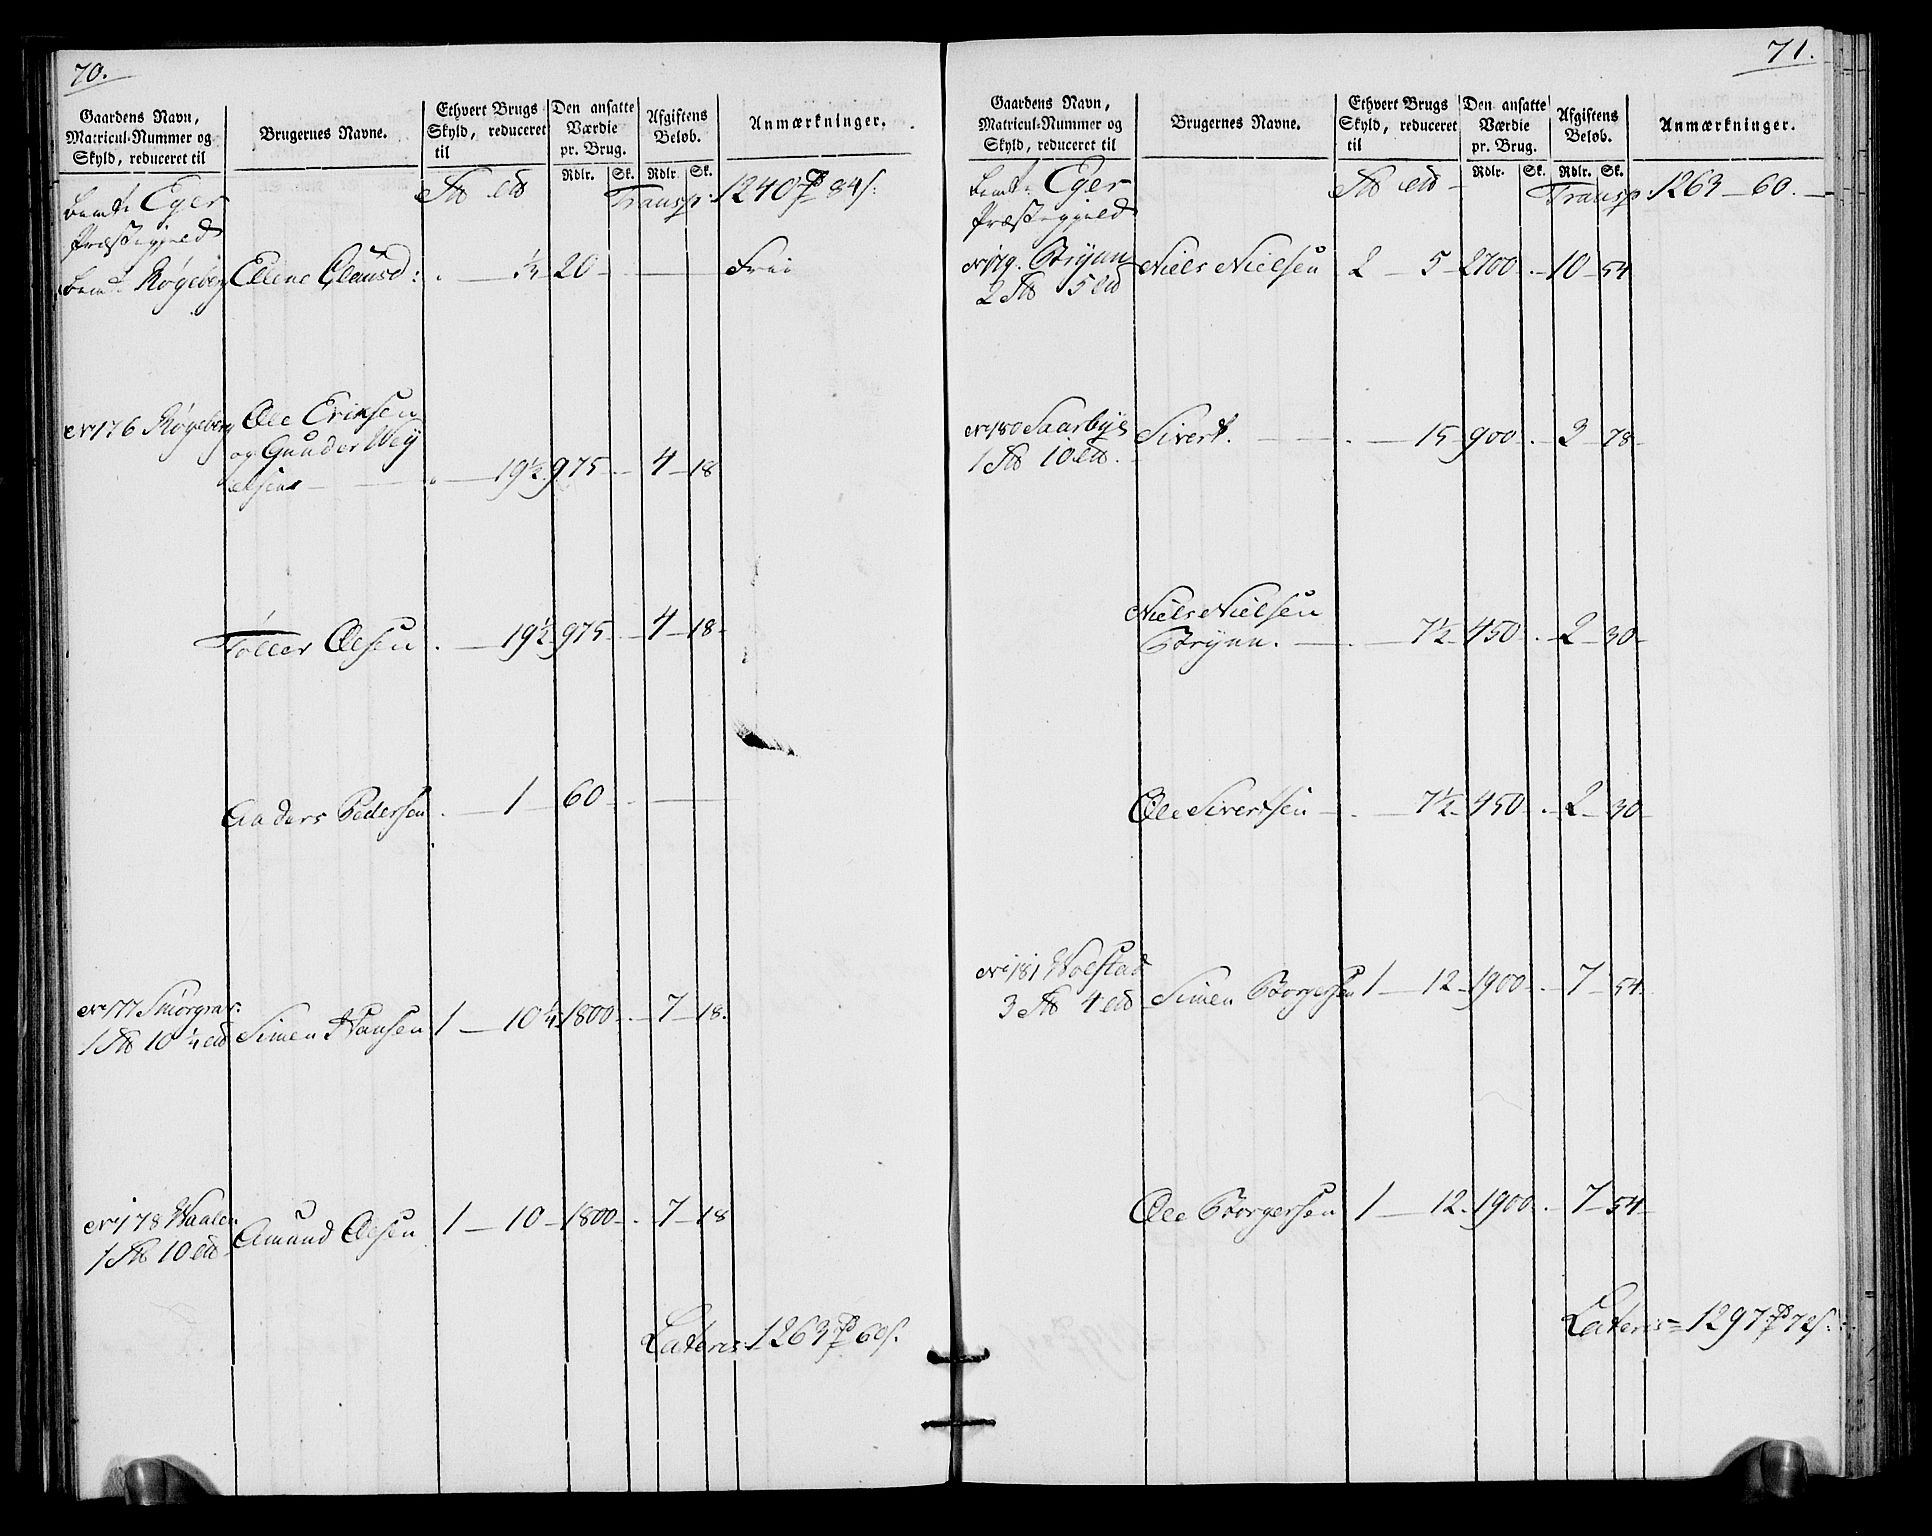 70.
Gaardens Navn, Matricul-Nummer og Skyld, reduceret til
Brugernes Navne.
Ethvert Brugs Skyld, reduceret til
Den ansatte Værdie pr. Brug.
Afgiftens Beløb.
Anmærkninger.
Rdlr. Sk. Rdlr. Sk.
Eger Transp: 1240 84
Præstegjeld
Røgeberg Elene Clausd: ½ 20 Frii
No 176 Røgeberg Ole Eriksen
og Gunder
19½ 975 4 18
Toller Olsen 19½ 975 4 18
Anders Pedersen 1 60
No 177 Smørgrav:
10¼ Simen Hansen 1 10¼ 1800 7 18
No 178 Haalen
10 Amund Olsen 1 10 1800 7 18
Lateris 1263 60
71.
Gaardens Navn, Matricul-Nummer og Skyld, reduceret til
Brugernes Navne.
Ethvert Brugs Skyld, reduceret til
Den ansatte Værdie pr. Brug.
Afgiftens Beløb.
Anmærkninger.
Rdlr. Sk. Rdlr. Sk.
Eger Transp: 1263 60.
Præstegjeld
No 179. Strynn Niels Nielsen 2 5 2700 10 54
No 180 Saarbye Sivert. 15 900 3 78
Niels Nielsen
7½ 450 2 30
Ole Sivertsen 7½ 450 2 30
No 181 Holstad
3 4 Simen Borgersen 1 12 1900 7 54
Ole Borgersen 1 12 1900 7 54
Lateris 1297 72